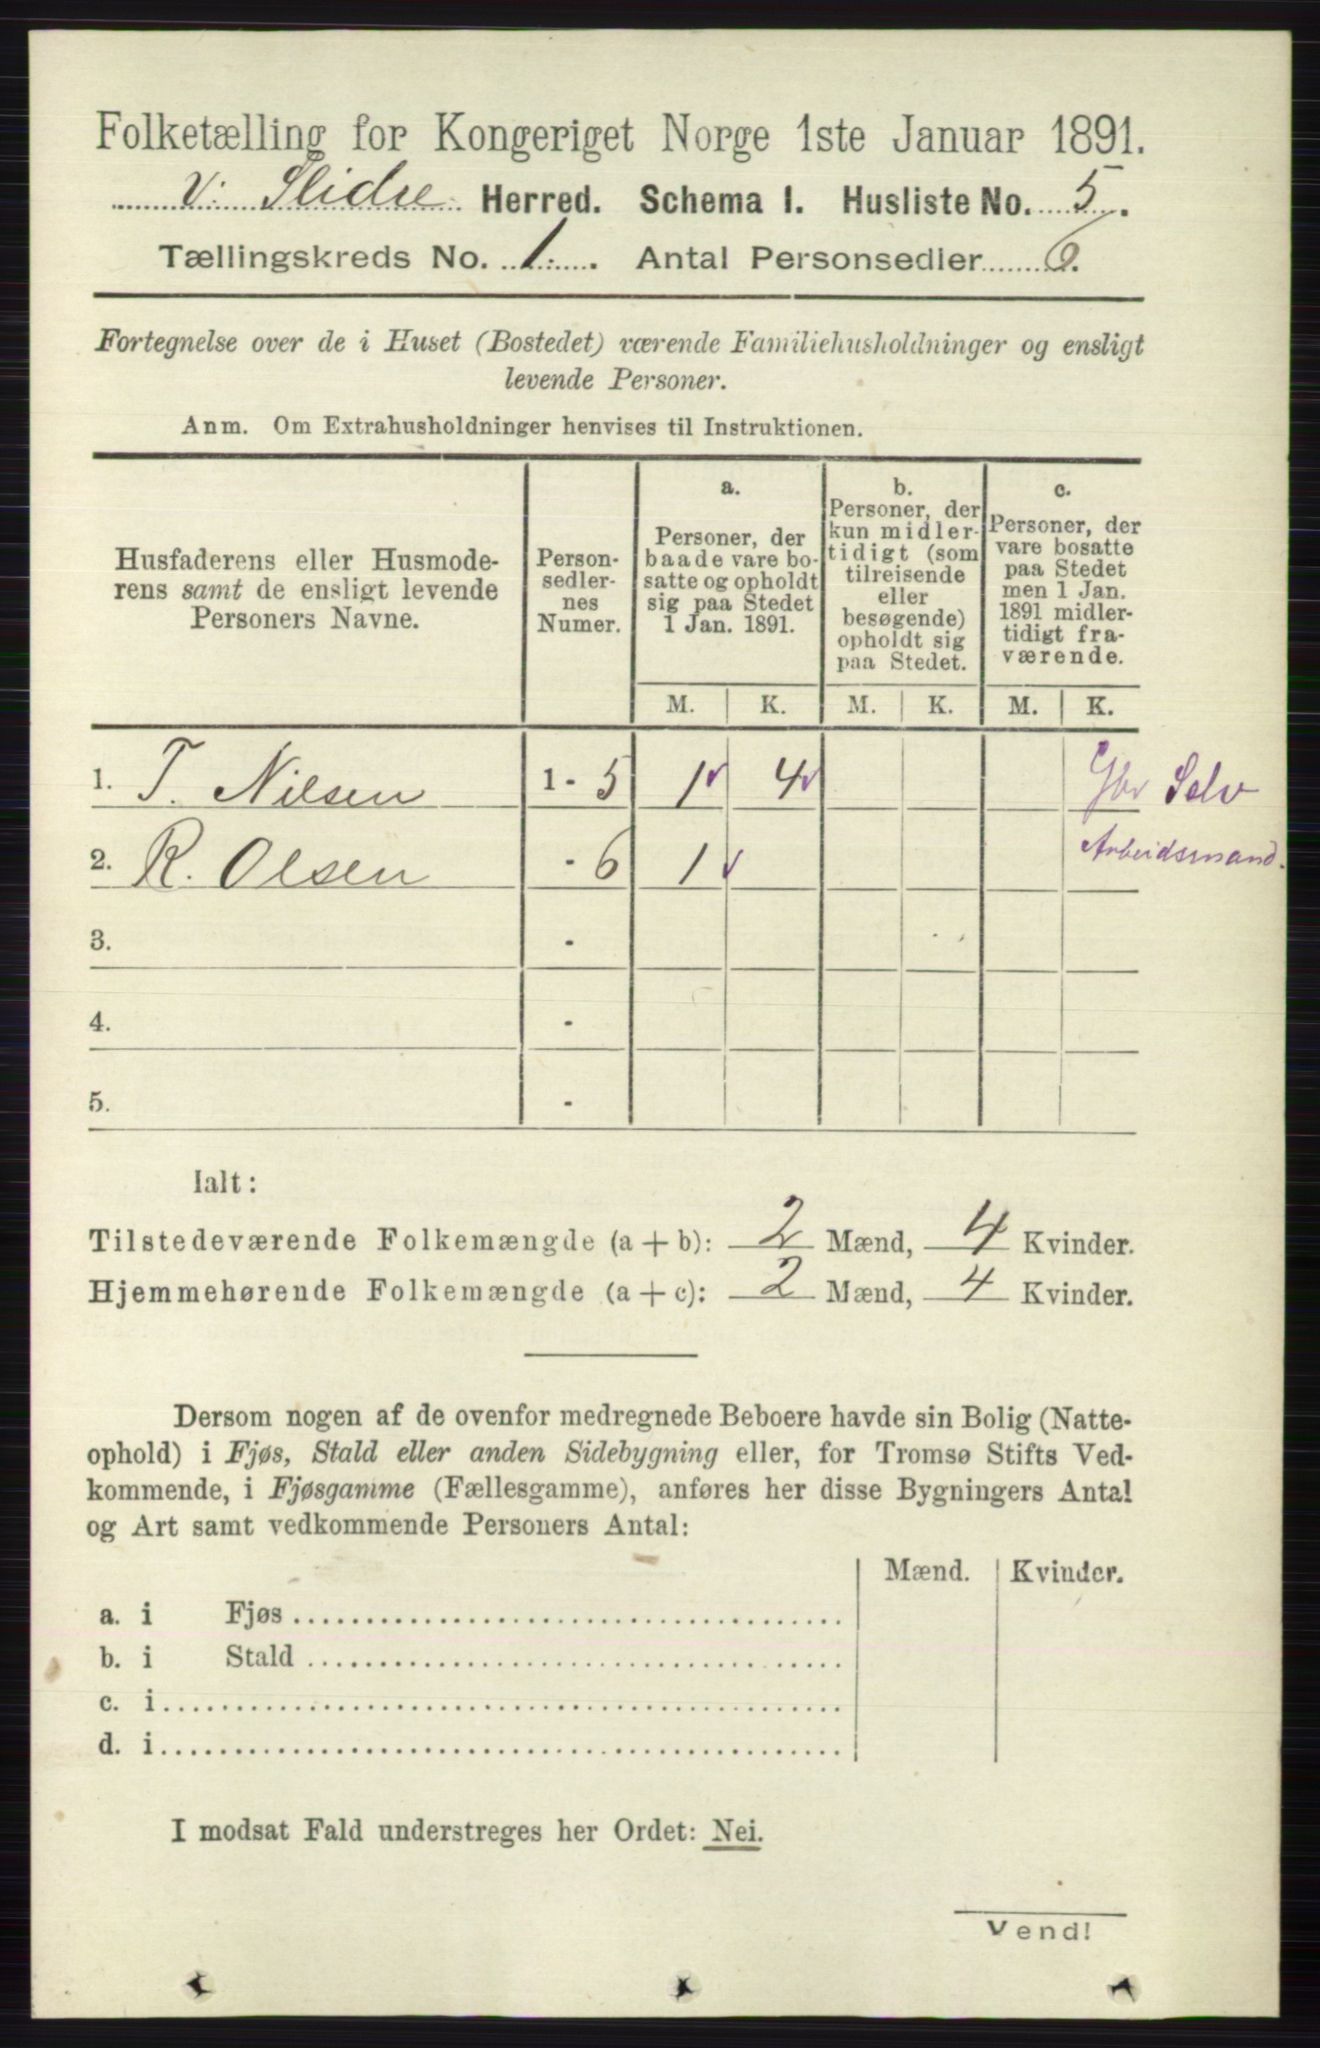 Folketælling for Kongeriget Norge 1ste Januar 1891.
V. Slidre Herred. Schema I. Husliste No. 5.
Tællingskreds No. 1. Antal Personsedler 6.
Fortegnelse over de i Huset (Bostedet) værende Familiehusholdninger og ensligt
levende Personer.
Anm. Om Extrahusholdninger henvises til Instruktionen.
Husfaderens eller Husmode-
rens samt de ensligt levende
Personers Navne.
Person-
sedler-
nes
Numer.
a.
Personer, der
baade vare bo-
satte og opholdt
sig paa Stedet
1 Jan. 1891.
b.
Personer, der
kun midler-
tidigt (som
tilreisende
eller
besøgende)
opholdt sig
paa Stedet.
c.
Personer, der
vare bosatte
paa Stedet
men 1 Jan.
1891 midler-
tidigt fra-
værende.
M. K. M. K. M. K.
1. T. Nilsen 1 - 5 1 4 Gbr Selv
2. R. Olsen - 6 1 Arbeidsmand.
3. -
4. -
5. -
Ialt:
Tilstedeværende Folkemængde (a + b): 2 Mænd, 4 Kvinder.
Hjemmehørende Folkemængde (a + c): 2 Mænd, 4 Kvinder.
Dersom nogen af de ovenfor medregnede Beboere havde sin Bolig (Natte-
ophold) i Fjøs, Stald eller anden Sidebygning eller, for Tromsø Stifts Ved-
kommende, i Fjøsgamme (Fællesgamme), anføres her disse Bygningers Antal
og Art samt vedkommende Personers Antal:
Mænd. Kvinder.
a. i Fjøs
b. i Stald
c. i
d. i
I modsat Fald understreges her Ordet: Nei.
Vend!